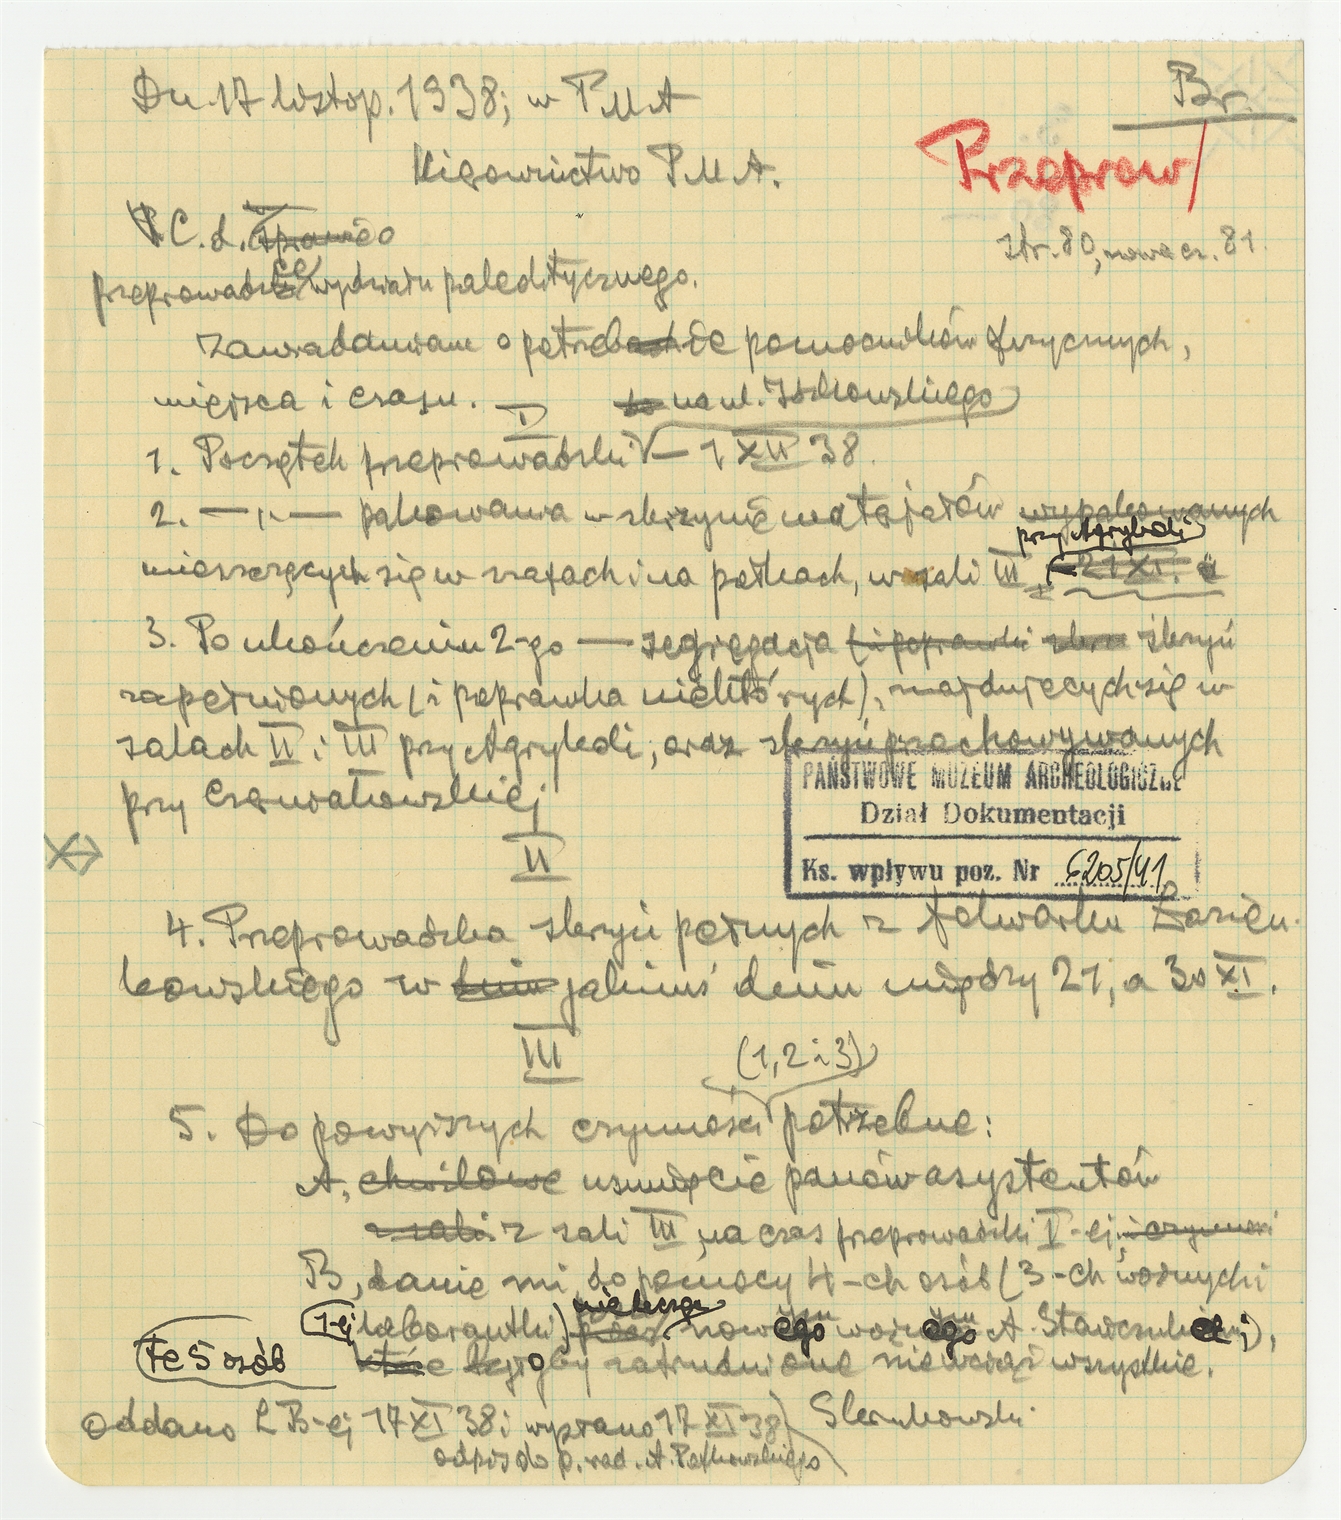 Dn 17 listop. 1938; w PMA
Br.
Kierownictwo P.M.A.
Przeprow/
C.d. do
str. 80, nowe cz. 81.
przeprowadzce wydziału paleolitycznego.
Zawiadamiam o potrzebie pomocników fizycznych,
miejsca i czasu.
I
na ul. Izłkowskiego
1. Początek przeprowadzki — 1 XII 38.
2. — " — pakowania w skrzynie materjałów wypakowanych
przy Agrykoli
mieszczących się w szafach i na półkach, w sali III, 21 XI.
3. Po ukończeniu 2-go — segregacja (i poprawki skrzyń
zapełnionych (i poprawka niektórych), znajdujących się w
salach II i III przy Agrykoli, oraz skrzyń przechowywanych
przy Czerniakowskiej
PAŃSTWOWE MUZEUM ARCHEOLOGICZNE
Dział Dokumentacji
Ks. wpływu poz. Nr 6205/41
II
4. Przeprowadzka skrzyń pełnych z folwarku Łazien-
kowskiego w dniu jakimś dniu między 21, a 30 XI.
III
(1, 2 i 3)
5. Do powyższych czynności potrzebne:
A, chwilowe usunięcie panów asystentów
z sali III, na czas przeprowadzki I-ej, i czynności
B, danie mi do pomocy 4-ch osób (3-ch woźnych i
1-ej laborantki) nowego woźnego A. Stawczuk
Te 5 osób byłyby zatrudnione nie wciąż wszystkie.
Oddano L B-ej 17 XI 38 i wysłano 17 XI 38
Sk. Krukowski
odpis do p. rad. A. Pełkowskiego